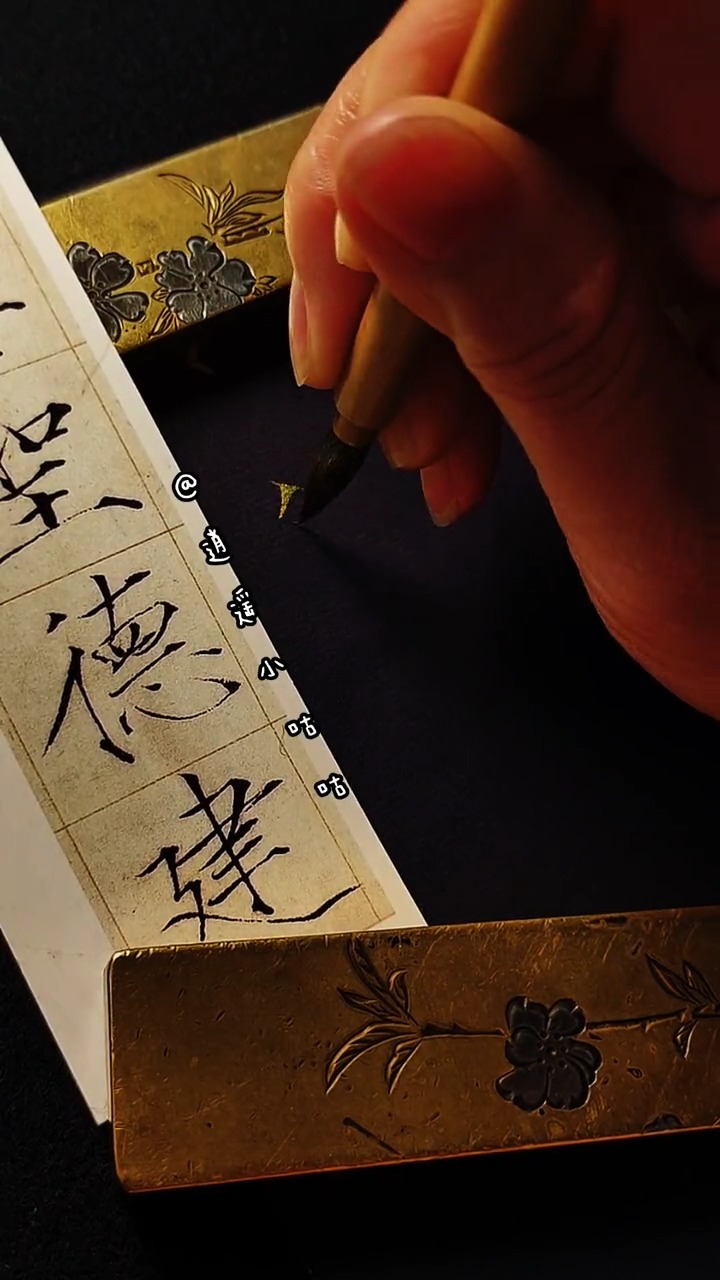 聖
德
建
@逍遥小咕咕